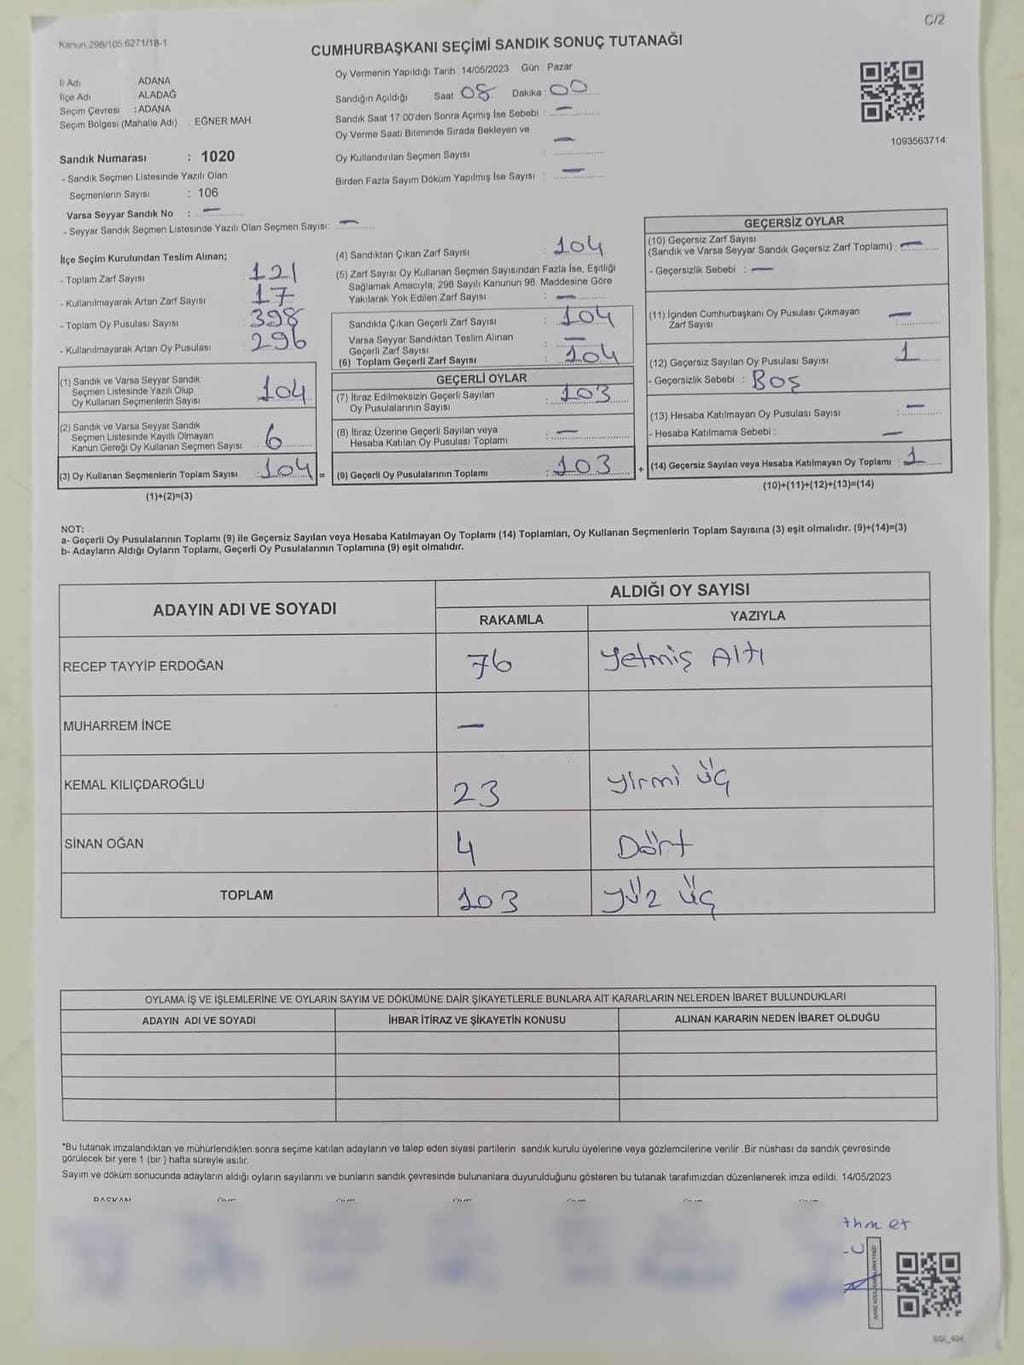 C/2
Kanun 298/105 6271/18-1
CUMHURBAŞKANI SEÇİMİ SANDIK SONUÇ TUTANAĞI
İl Adı : ADANA
İlçe Adı : ALADAĞ
Seçim Çevresi : ADANA
Seçim Bölgesi (Mahalle Adı) : EĞNER MAH.
Oy Vermenin Yapıldığı Tarih : 14/05/2023 Gün : Pazar
Sandığın Açıldığı Saat 08 Dakika : 00
Sandık Saat 17:00'den Sonra Açımış İse Sebebi : —
Oy Verme Saati Bitiminde Sırada Bekleyen ve
Oy Kullandırılan Seçmen Sayısı : —
Birden Fazla Sayım Döküm Yapılmış İse Sayısı : —
1093563714
Sandık Numarası : 1020
- Sandık Seçmen Listesinde Yazılı Olan
Seçmenlerin Sayısı : 106
Varsa Seyyar Sandık No : —
- Seyyar Sandık Seçmen Listesinde Yazılı Olan Seçmen Sayısı: —
İlçe Seçim Kurulundan Teslim Alınan;
- Toplam Zarf Sayısı 121
- Kullanılmayarak Artan Zarf Sayısı 17
- Toplam Oy Pusulası Sayısı 398
- Kullanılmayarak Artan Oy Pusulası 296
(1) Sandık ve Varsa Seyyar Sandık
Seçmen Listesinde Yazılı Olup
Oy Kullanan Seçmenlerin Sayısı 104
(2) Sandık ve Varsa Seyyar Sandık
Seçmen Listesinde Kayıtlı Olmayan
Kanun Gereği Oy Kullanan Seçmen Sayısı 6
(3) Oy Kullanan Seçmenlerin Toplam Sayısı 104 =
(1)+(2)=(3)
(4) Sandıktan Çıkan Zarf Sayısı : 104
(5) Zarf Sayısı Oy Kullanan Seçmen Sayısından Fazla İse, Eşitliği
Sağlamak Amacıyla; 298 Sayılı Kanunun 98. Maddesine Göre
Yakılarak Yok Edilen Zarf Sayısı : —
Sandıkta Çıkan Geçerli Zarf Sayısı : 104
Varsa Seyyar Sandıktan Teslim Alınan
Geçerli Zarf Sayısı : —
(6) Toplam Geçerli Zarf Sayısı : 104
GEÇERLİ OYLAR
(7) İtiraz Edilmeksizin Geçerli Sayılan
Oy Pusulalarının Sayısı : 103
(8) İtiraz Üzerine Geçerli Sayılan veya
Hesaba Katılan Oy Pusulası Toplamı : —
(9) Geçerli Oy Pusulalarının Toplamı : 103 +
GEÇERSİZ OYLAR
(10) Geçersiz Zarf Sayısı
(Sandık ve Varsa Seyyar Sandık Geçersiz Zarf Toplamı) : —
- Geçersizlik Sebebi : —
(11) İçinden Cumhurbaşkanı Oy Pusulası Çıkmayan
Zarf Sayısı : —
(12) Geçersiz Sayılan Oy Pusulası Sayısı : 1
- Geçersizlik Sebebi : BOŞ
(13) Hesaba Katılmayan Oy Pusulası Sayısı : —
- Hesaba Katılmama Sebebi : —
(14) Geçersiz Sayılan veya Hesaba Katılmayan Oy Toplamı : 1
(10)+(11)+(12)+(13)=(14)
NOT:
a- Geçerli Oy Pusulalarının Toplamı (9) ile Geçersiz Sayılan veya Hesaba Katılmayan Oy Toplamı (14) Toplamları, Oy Kullanan Seçmenlerin Toplam Sayısına (3) eşit olmalıdır. (9)+(14)=(3)
b- Adayların Aldığı Oyların Toplamı, Geçerli Oy Pusulalarının Toplamına (9) eşit olmalıdır.
ADAYIN ADI VE SOYADI
ALDIĞI OY SAYISI
RAKAMLA YAZIYLA
RECEP TAYYİP ERDOĞAN 76 Yetmiş Altı
MUHARREM İNCE —
KEMAL KILIÇDAROĞLU 23 yirmi üç
SİNAN OĞAN 4 Dört
TOPLAM 103 yüz üç
OYLAMA İŞ VE İŞLEMLERİNE VE OYLARIN SAYIM VE DÖKÜMÜNE DAİR ŞİKAYETLERLE BUNLARA AİT KARARLARIN NELERDEN İBARET BULUNDUKLARI
ADAYIN ADI VE SOYADI İHBAR İTİRAZ VE ŞİKAYETİN KONUSU ALINAN KARARIN NEDEN İBARET OLDUĞU
*Bu tutanak imzalandıktan ve mühürlendikten sonra seçime katılan adayların ve talep eden siyasi partilerin sandık kurulu üyelerine veya gözlemcilerine verilir. Bir nüshası da sandık çevresinde
görülecek bir yere 1 (bir) hafta süreyle asılır.
Sayım ve döküm sonucunda adayların aldığı oyların sayılarını ve bunların sandık çevresinde bulunanlara duyurulduğunu gösteren bu tutanak tarafımızdan düzenlenerek imza edildi. 14/05/2023
BAŞKAN